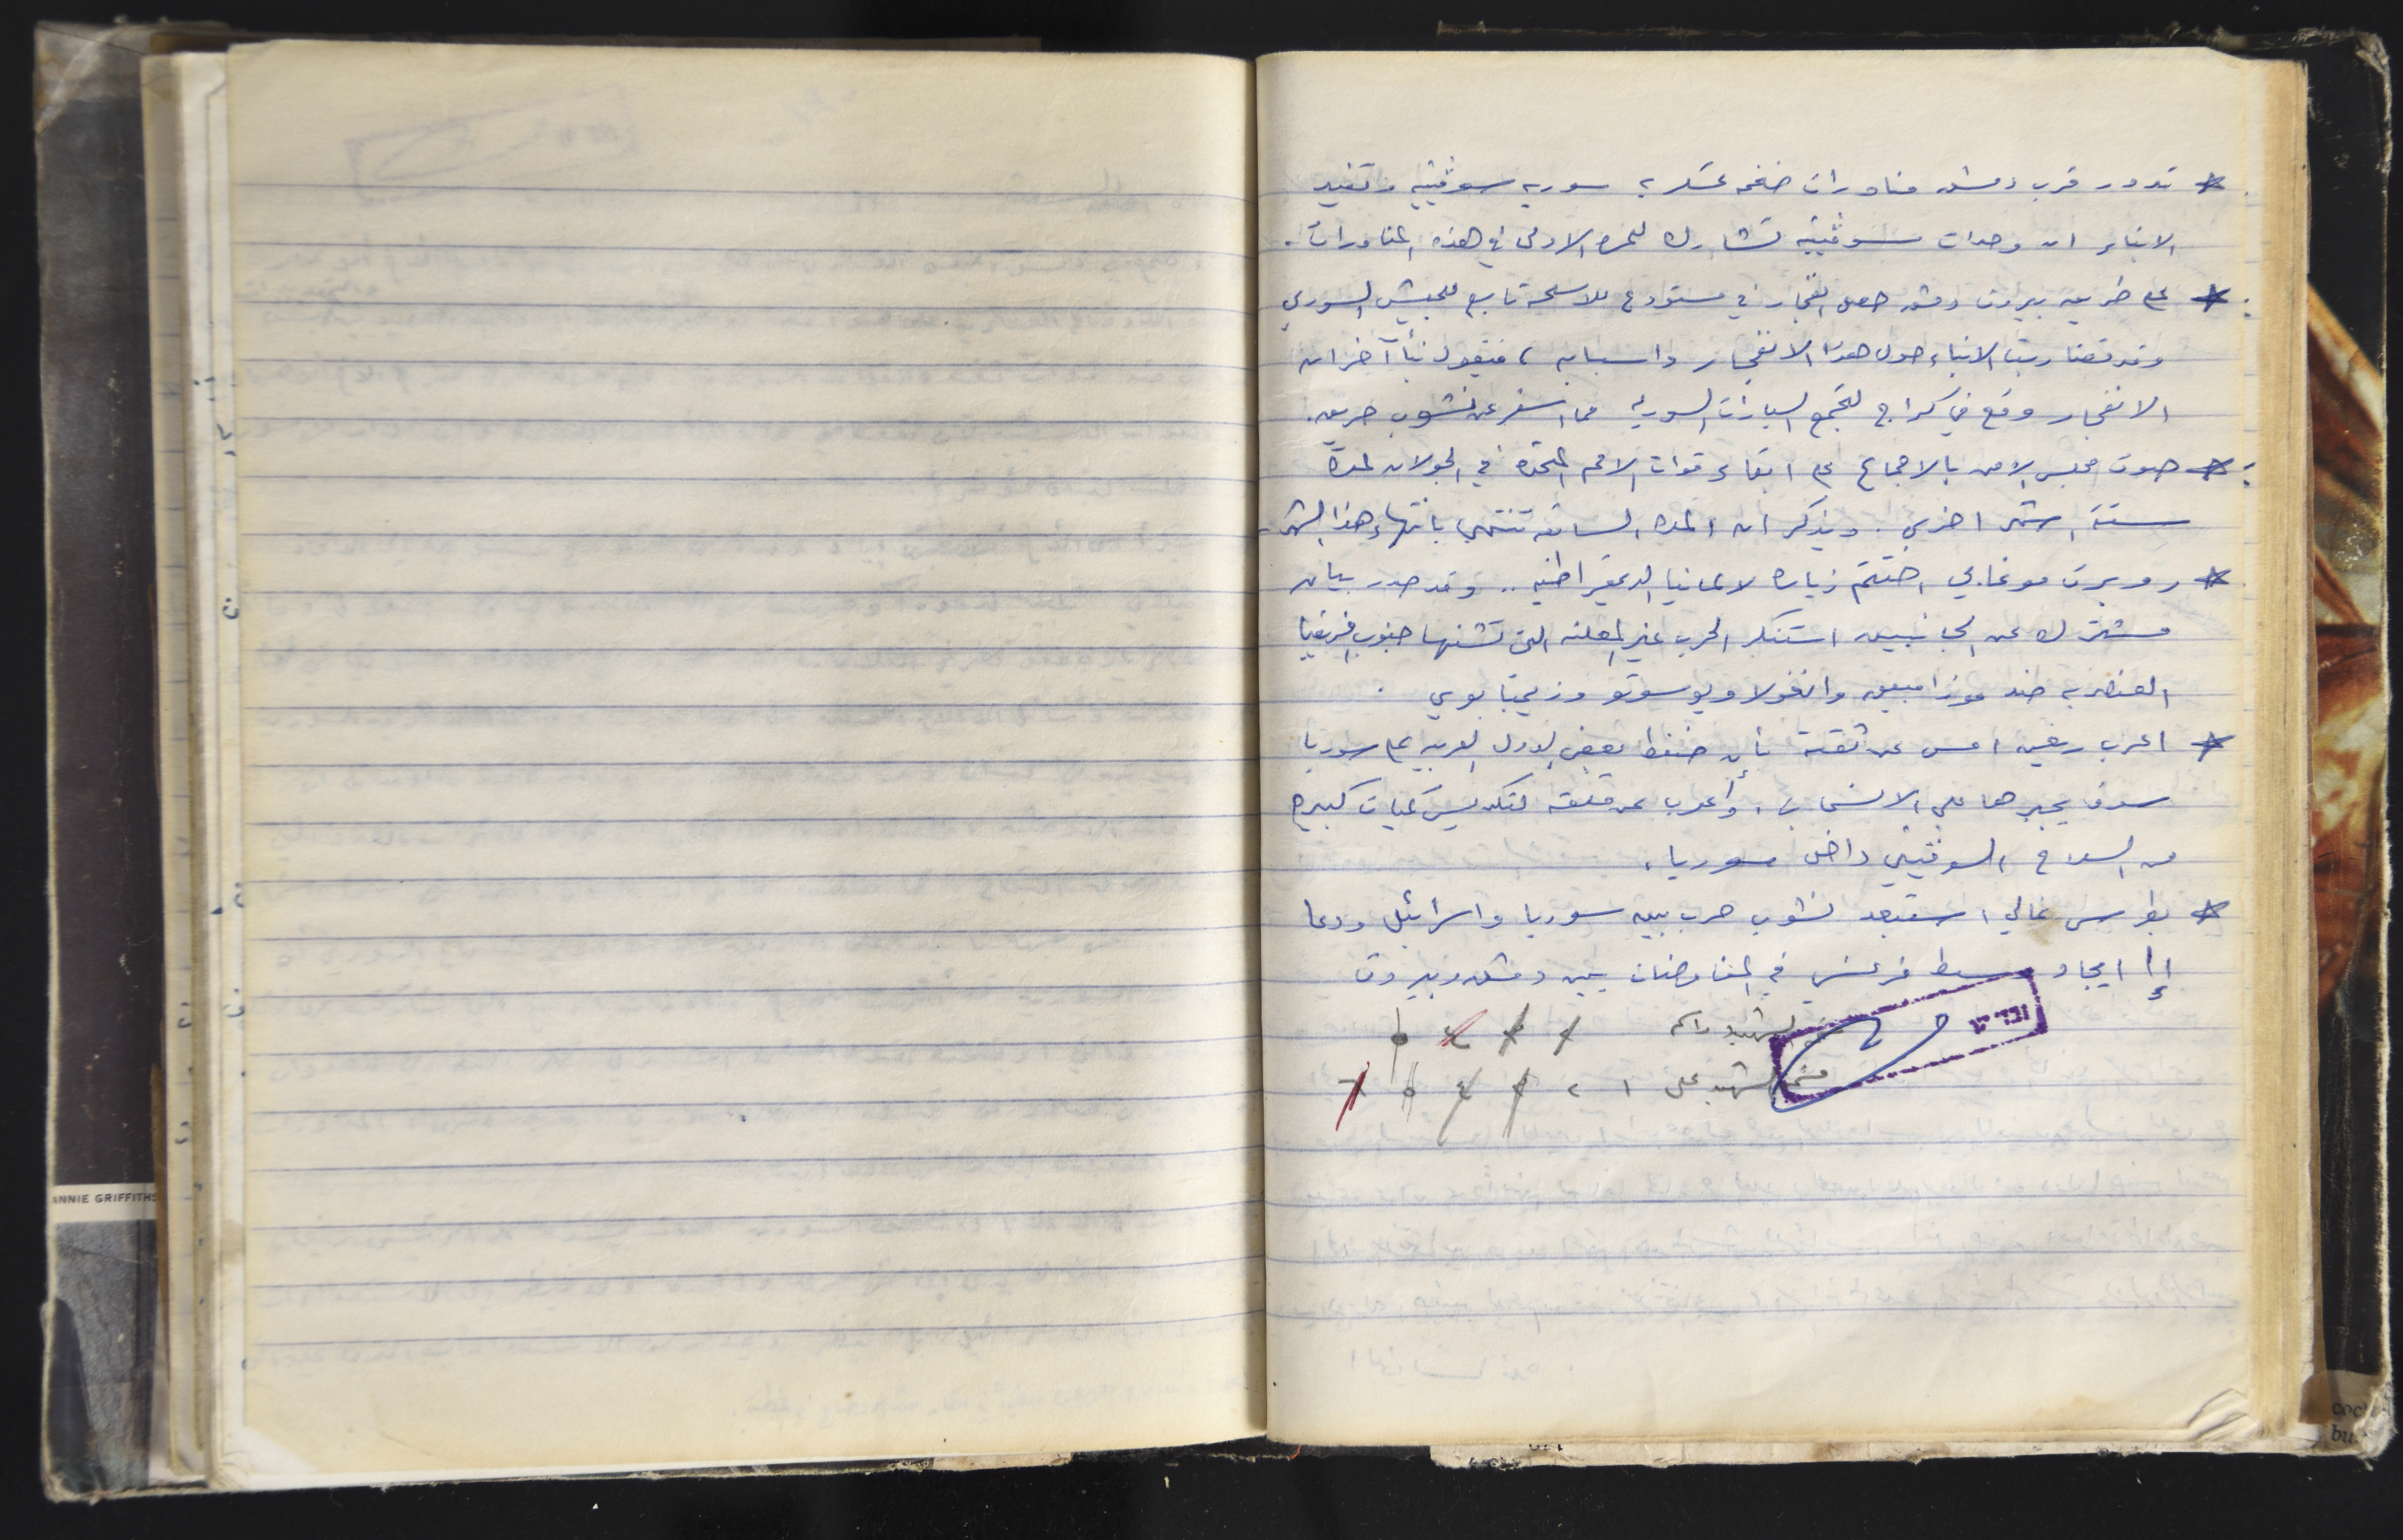 * تدور قرب دمشق مناورات ضخمه عسكريه سوريه سوفيتيه وتفيد
الانباء ان وحدات سوفيتيه تشارك للمره الاولى في هذه المناورات .
* على طريق بيروت دمشق حصل انفجار في مستودع للاسلحه تابع للجيش السوري
وقد تضاربت الانباء حول هذا الانفجار واسبابه ، فيقول نبأ آخر ان
الانفجار وقع في كراج لتجمع السيارات السوريه مما اسفر عن نشوب حريق .
* صوت مجلس الامن بالاجماع على ابقاء قوات الامم المتحده في الجولان لمدة
ستة اشهر اخرى . ويذكر ان المده السابقه تنتهي بانتهاء هذا الشهر
* روبرت موغابي اختتم زياره لالمانيا الديمقراطيه .. وقد صدر بيان
مشترك عن الجانبين استنكر الحرب غير المعلنه التي تشنها جنوب افريقيا
العنصريه ضد موزامبيق وانغولا وليسوتو وزيمبابوي .
* اعرب ريغين امس عن ثقته بأن ضغط بعض الدول العربيه على سوريا
سوف يجبرها على الانسحاب ، وأعرب عن قلقه لتكديس كميات كبيره
من السلاح السوفيتي داخل سوريا .
* بطرس غالي استبعد نشوب حرب بين سوريا واسرائيل ودعا
إلى ايجاد وسيط فرنسي في المفاوضات بين دمشق وبيروت
الشهيد راسم ٢ ٣ ٤ ٥
الشهيد علي ١ ٢ ٣ ٤ ٥ ٦
נבדק
ANNIE GRIFFITHS